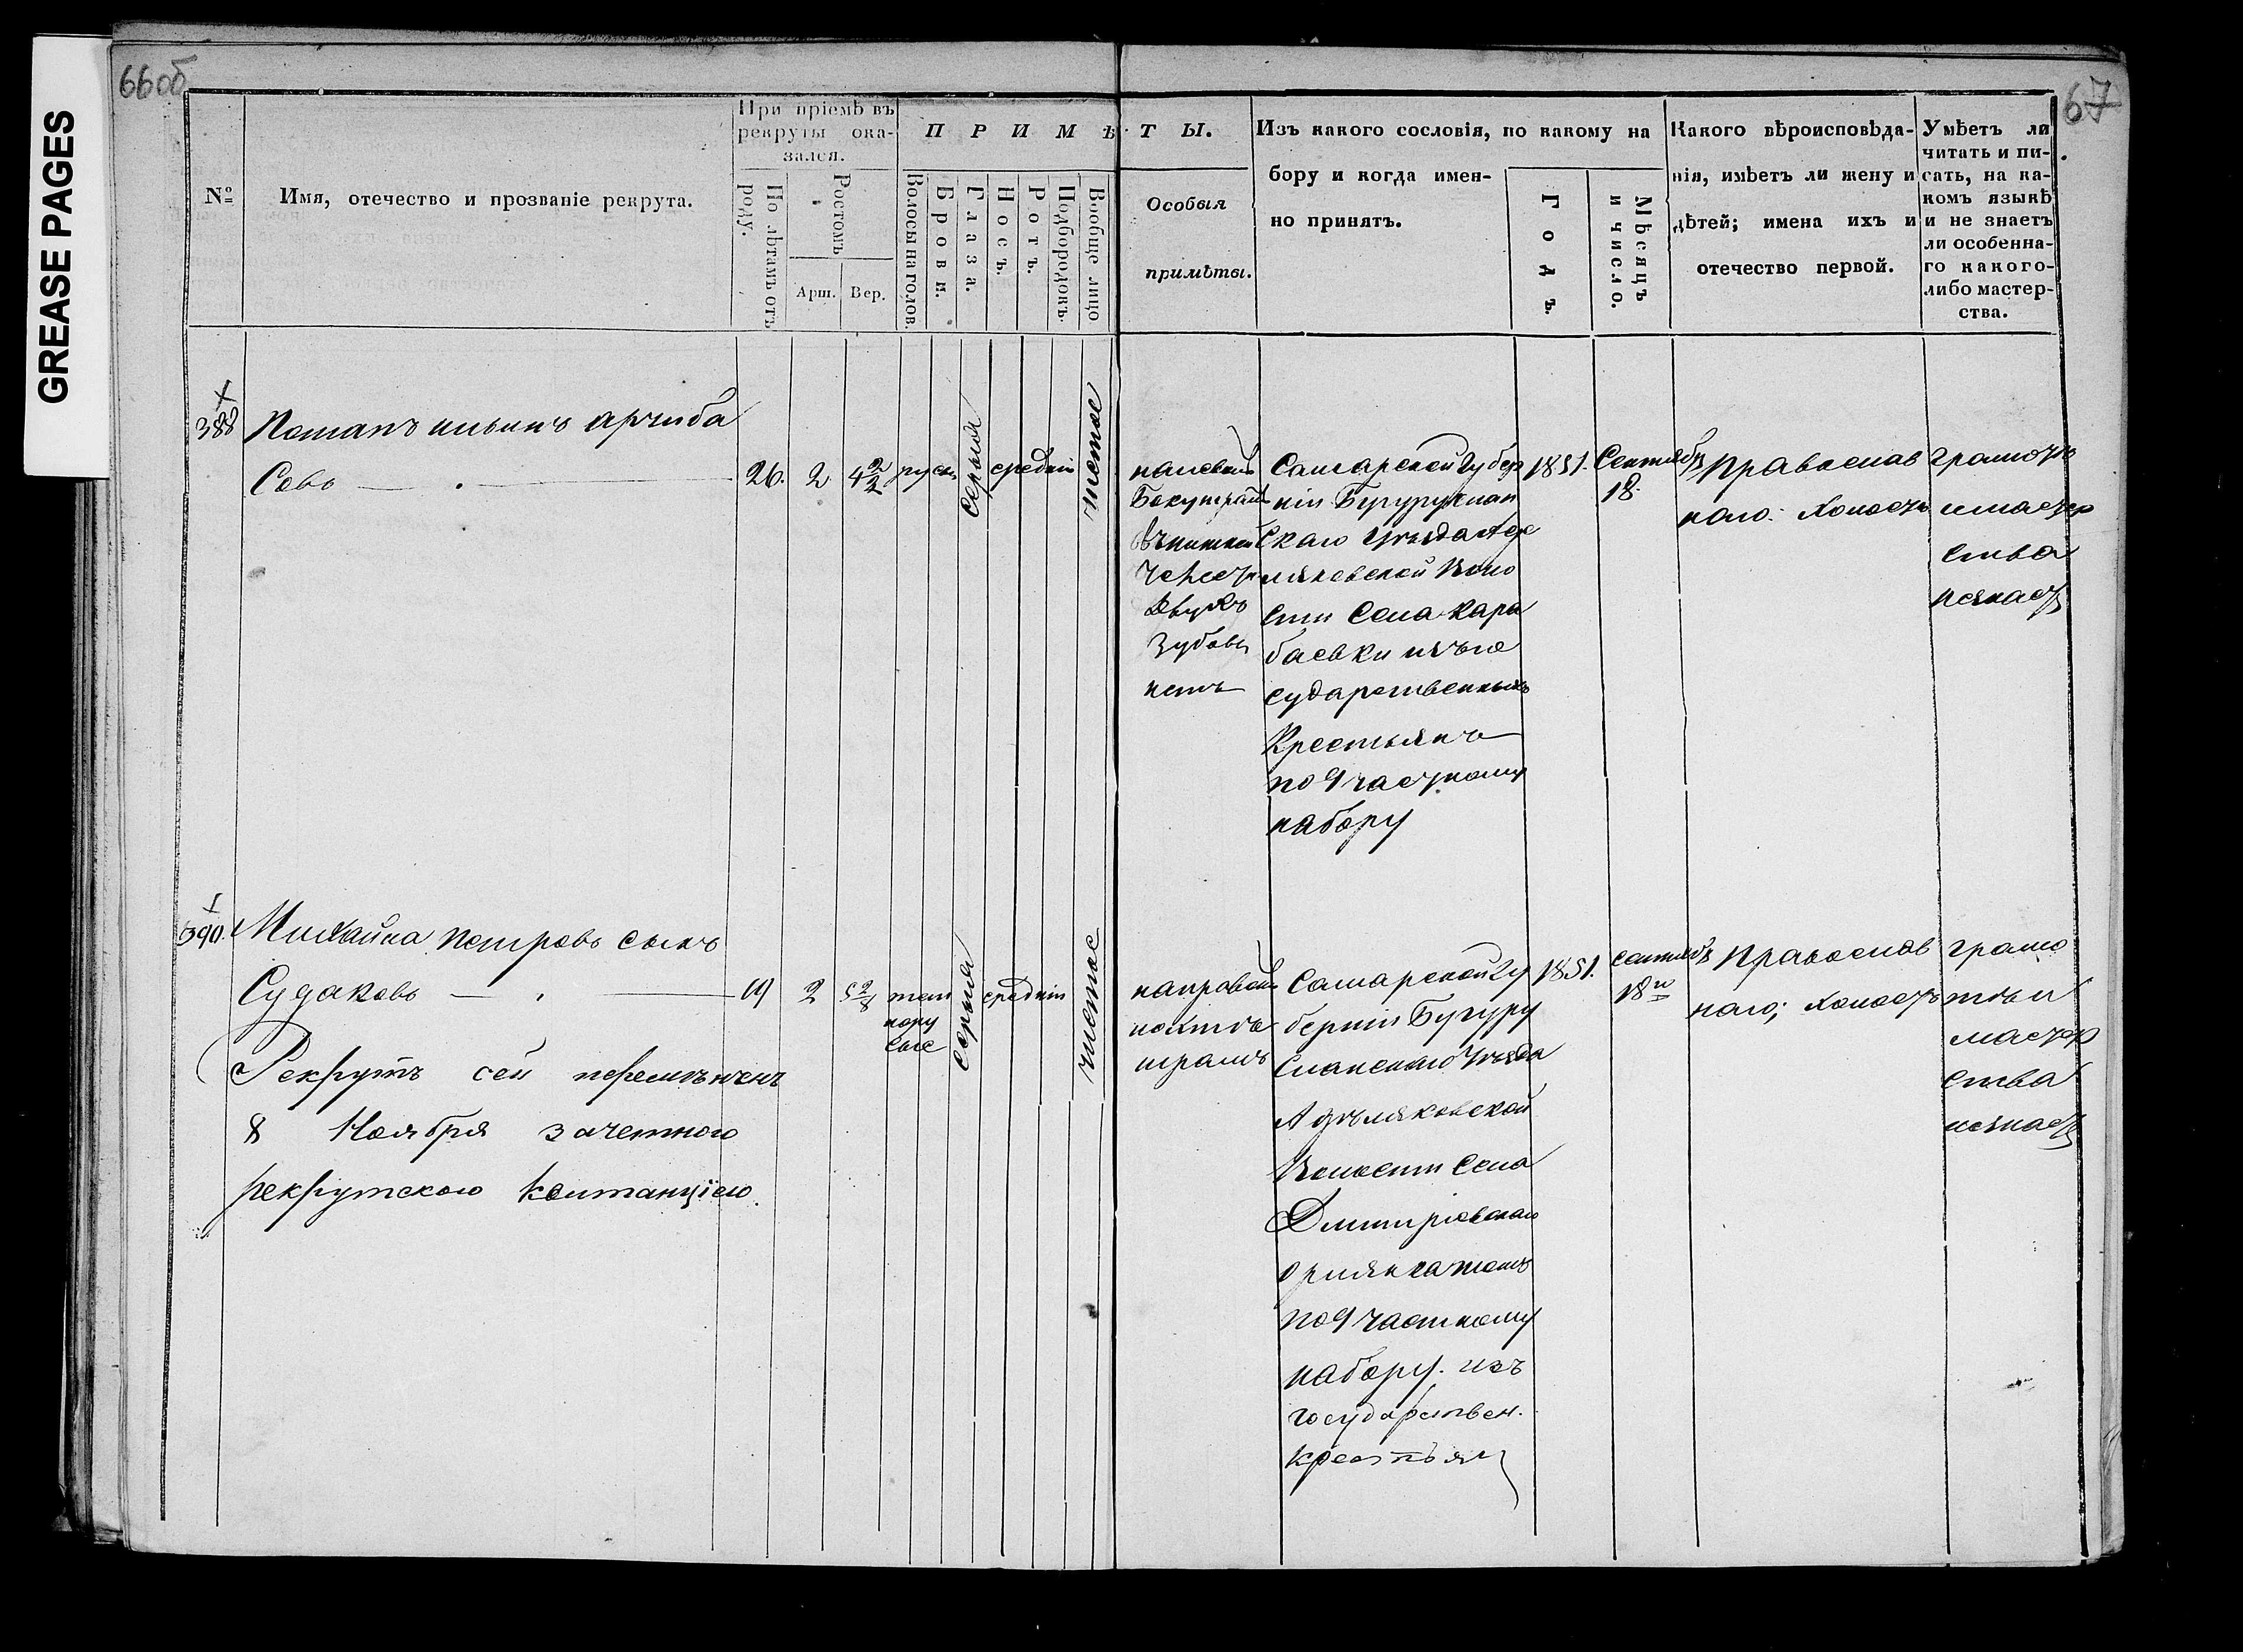 GREASE PAGES
66об
67
№
Имя, отечество и прозваніе рекрута.
При пріемѣ въ
рекруты ока-
зался.
По лѣтамъ отъ
роду.
Ростомъ
Арш.
Вер.
ПРИМѢТЫ.
Волосы на голов.
Брови.
Глаза.
Носъ.
Ротъ.
Подбородокъ.
Вообще лицо
Особыя
примѣты.
Изъ какого сословія, по какому на
бору и когда имен-
но принятъ.
Годъ.
Мѣсяцъ
и число.
Какого вѣроисповѣда-
нія, имѣетъ ли жену и
дѣтей; имена ихъ и
отечество первой.
Умѣетъ ли
читать и пи-
сать, на ка-
комъ языкѣ
и не знаетъ
ли особенна-
го какого-
либо мастер-
ства.
388
Потапъ ильинъ арчиба
Севъ
26.
2
4 2/2
русы
серыя
средніи
чистое
налевомъ
Боку
двухъ
Зубовъ
нетъ
Самарской Губер
ніи Бугуруслан
Скаго Уѣзда
Воло
сти Села Кара
баевки изъго
сударственныхъ
Крестьянъ
по 9 частному
набору
1851.
Сентябъ
18.
православ
наго. Холостъ
грамотъ
имастер
ства
незнаетъ
390.
Михайла петровъ сынъ
Судаковъ
19
2
5 2/8
тем
нору
сые
серыя
средніи
чистое
направой
ногтѣ
шрамъ
Самарской Гу
берніи Бугуру
Сланскаго Уѣзда
Адѣляковской
Волости Села
Дмитріевскаго
по 9 частному
набору. изъ
государствен.
крестьян
1851.
сентябъ
18го
Православ
наго; холостъ
грамо
тѣ и
мастер
ства
незнаетъ
Рекрутъ сей перемѣненъ
8 Ноября зачетною
рекрутскою квитанціею.